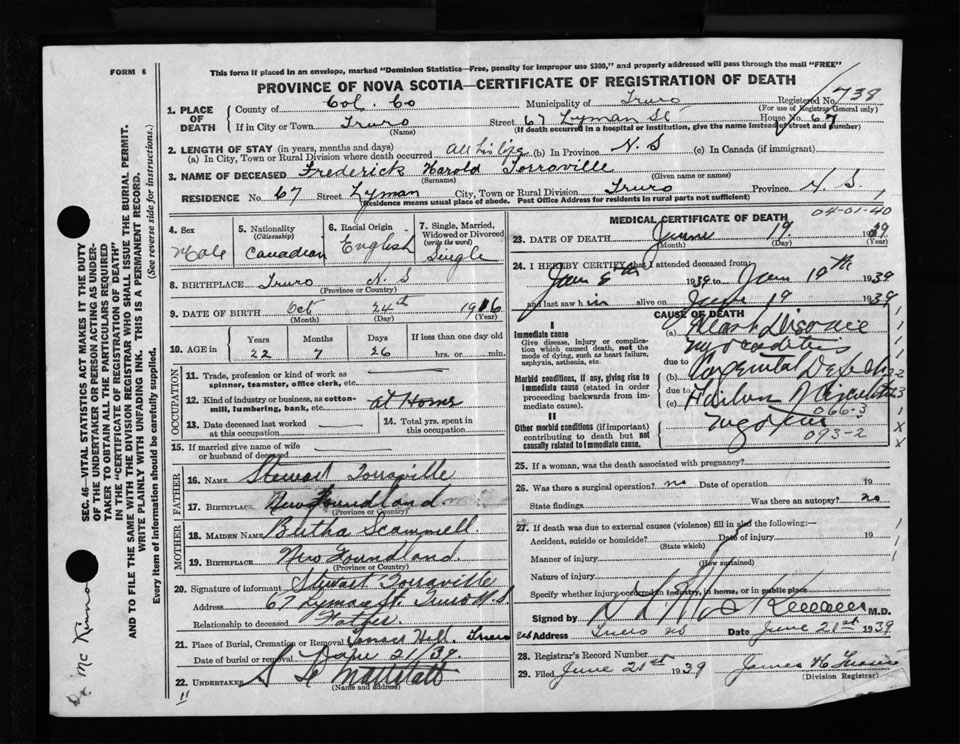 FORM 6
This form if placed in an envelope, marked "Dominion Statistics—Free, penalty for improper use $300," and properly addressed will pass through the mail "FREE"
PROVINCE OF NOVA SCOTIA—CERTIFICATE OF REGISTRATION OF DEATH
1. PLACE OF DEATH
County of Col. Co Municipality of Truro Registered No. 739
(For use of Registrar General only)
If in City or Town Truro Street 67 Lyman St House No. 67
(Name) (If death occurred in a hospital or institution, give the name instead of street and number)
2. LENGTH OF STAY (in years, months and days)
(a) In City, Town or Rural Division where death occurred All his life (b) In Province N. S (c) In Canada (if immigrant)
3. NAME OF DECEASED Frederick Harold Torraville
(Surname) (Given name or names)
RESIDENCE No. 67 Street Lyman City, Town or Rural Division Truro Province N. S.
(Residence means usual place of abode. Post Office Address for residents in rural parts not sufficient)
4. Sex Male
5. Nationality (Citizenship) Canadian
6. Racial Origin English
7. Single, Married, Widowed or Divorced (write the word) Single
8. BIRTHPLACE Truro N. S
(Province or Country)
9. DATE OF BIRTH Oct 24th 1916
(Month) (Day) (Year)
10. AGE in Years Months Days If less than one day old
22 7 26 hrs. or min.
OCCUPATION
11. Trade, profession or kind of work as spinner, teamster, office clerk, etc.
12. Kind of industry or business, as cotton-mill, lumbering, bank, etc. At Home
13. Date deceased last worked at this occupation
14. Total yrs. spent in this occupation
15. If married give name of wife or husband of deceased
FATHER
16. NAME Stewart Torraville
17. BIRTHPLACE Newfoundland
(Province or Country)
MOTHER
18. MAIDEN NAME Bertha Scammell
19. BIRTHPLACE New Foundland
(Province or Country)
20. Signature of informant Stewart Torraville
Address 67 Lyman St. Truro N. S.
Relationship to deceased Father
21. Place of Burial, Cremation or Removal Hill. Truro
Date of burial or removal June 21/39
22. UNDERTAKER
(Name and address)
MEDICAL CERTIFICATE OF DEATH
04-01-40
23. DATE OF DEATH June 19 1939
(Month) (Day) (Year)
24. I HEREBY CERTIFY that I attended deceased from:
1939 to 19th 1939
and last saw h im alive on June 19 1939
CAUSE OF DEATH
I
Immediate cause
Give disease, injury or complication which caused death, not the mode of dying, such as heart failure, asphyxia, asthenia, etc.
(a) Heart Disease
Myocarditis
due to
Morbid conditions, if any, giving rise to immediate cause (stated in order proceeding backwards from immediate cause).
(b) Congenital
due to
(c) Failure
066-3
II
Other morbid conditions (if important) contributing to death but not causally related to immediate cause.
093-2
25. If a woman, was the death associated with pregnancy?
26. Was there a surgical operation? no Date of operation 19
State findings Was there an autopsy? no
27. If death was due to external causes (violence) fill in also the following:—
Accident, suicide or homicide? Date of injury 19
(State which)
Manner of injury
(How sustained)
Nature of injury
Specify whether injury occurred in industry, in home, or in public place
Signed by M.D.
Address Truro NS Date June 21st 1939
28. Registrar's Record Number
29. Filed June 21st 1939 James
(Division Registrar)
SEC. 46—VITAL STATISTICS ACT MAKES IT THE DUTY
OF THE UNDERTAKER OR PERSON ACTING AS UNDER-
TAKER TO OBTAIN ALL THE PARTICULARS REQUIRED
IN THE "CERTIFICATE OF REGISTRATION OF DEATH"
AND TO FILE THE SAME WITH THE DIVISION REGISTRAR WHO SHALL ISSUE THE BURIAL PERMIT.
WRITE PLAINLY WITH UNFADING INK. THIS IS A PERMANENT RECORD.
Every item of information should be carefully supplied.
(See reverse side for instructions.)
Dr. McKinnon